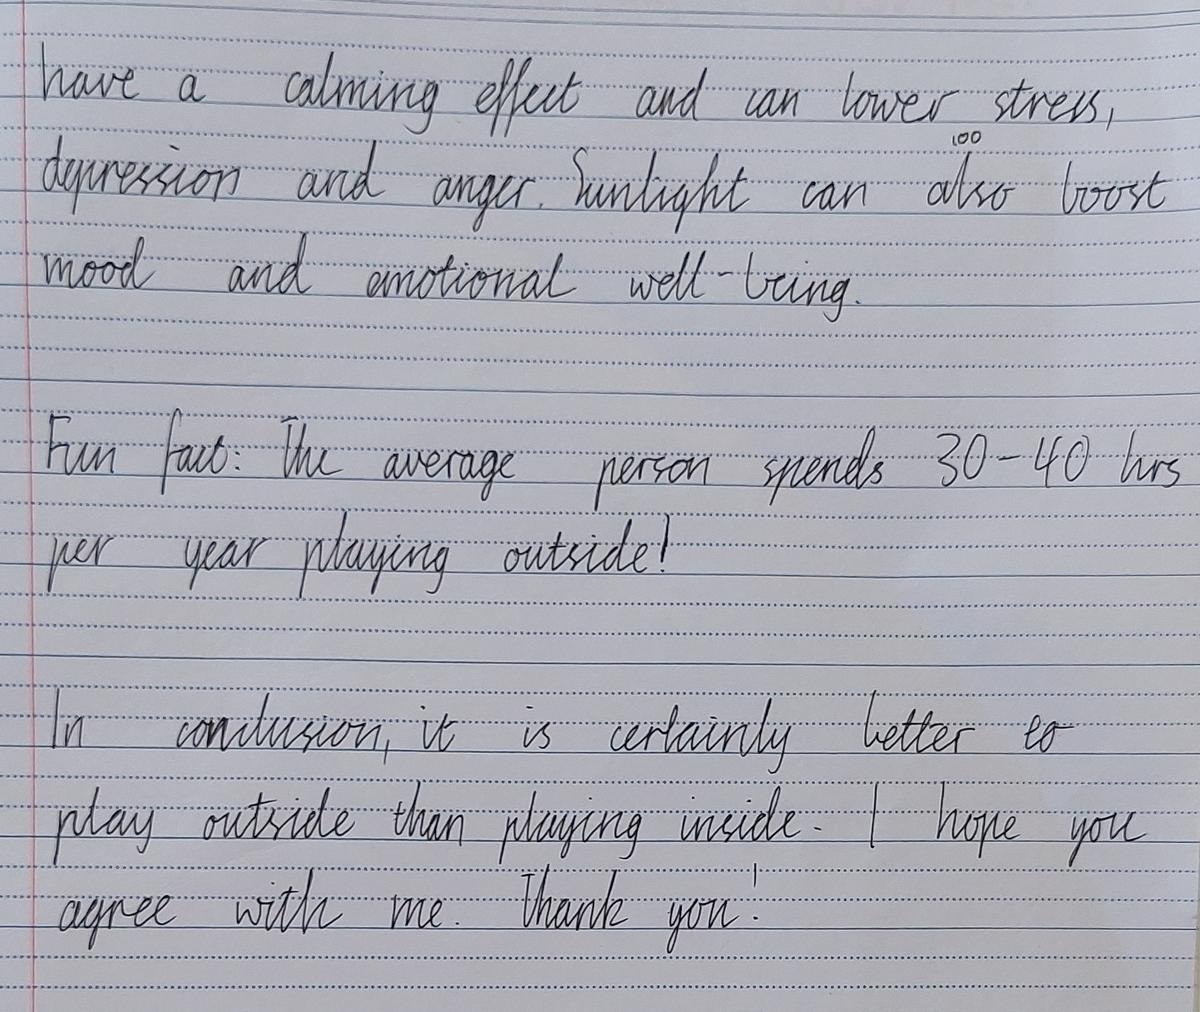 have a calming effect and can lower stress,
100
depression and anger. Sunlight can also boost
mood and emotional well-being.
Fun fact: The average person spends 30-40 hrs
per year playing outside!
In conclusion, it is certainly better to
play outside than playing inside. I hope you
agree with me. Thank you!